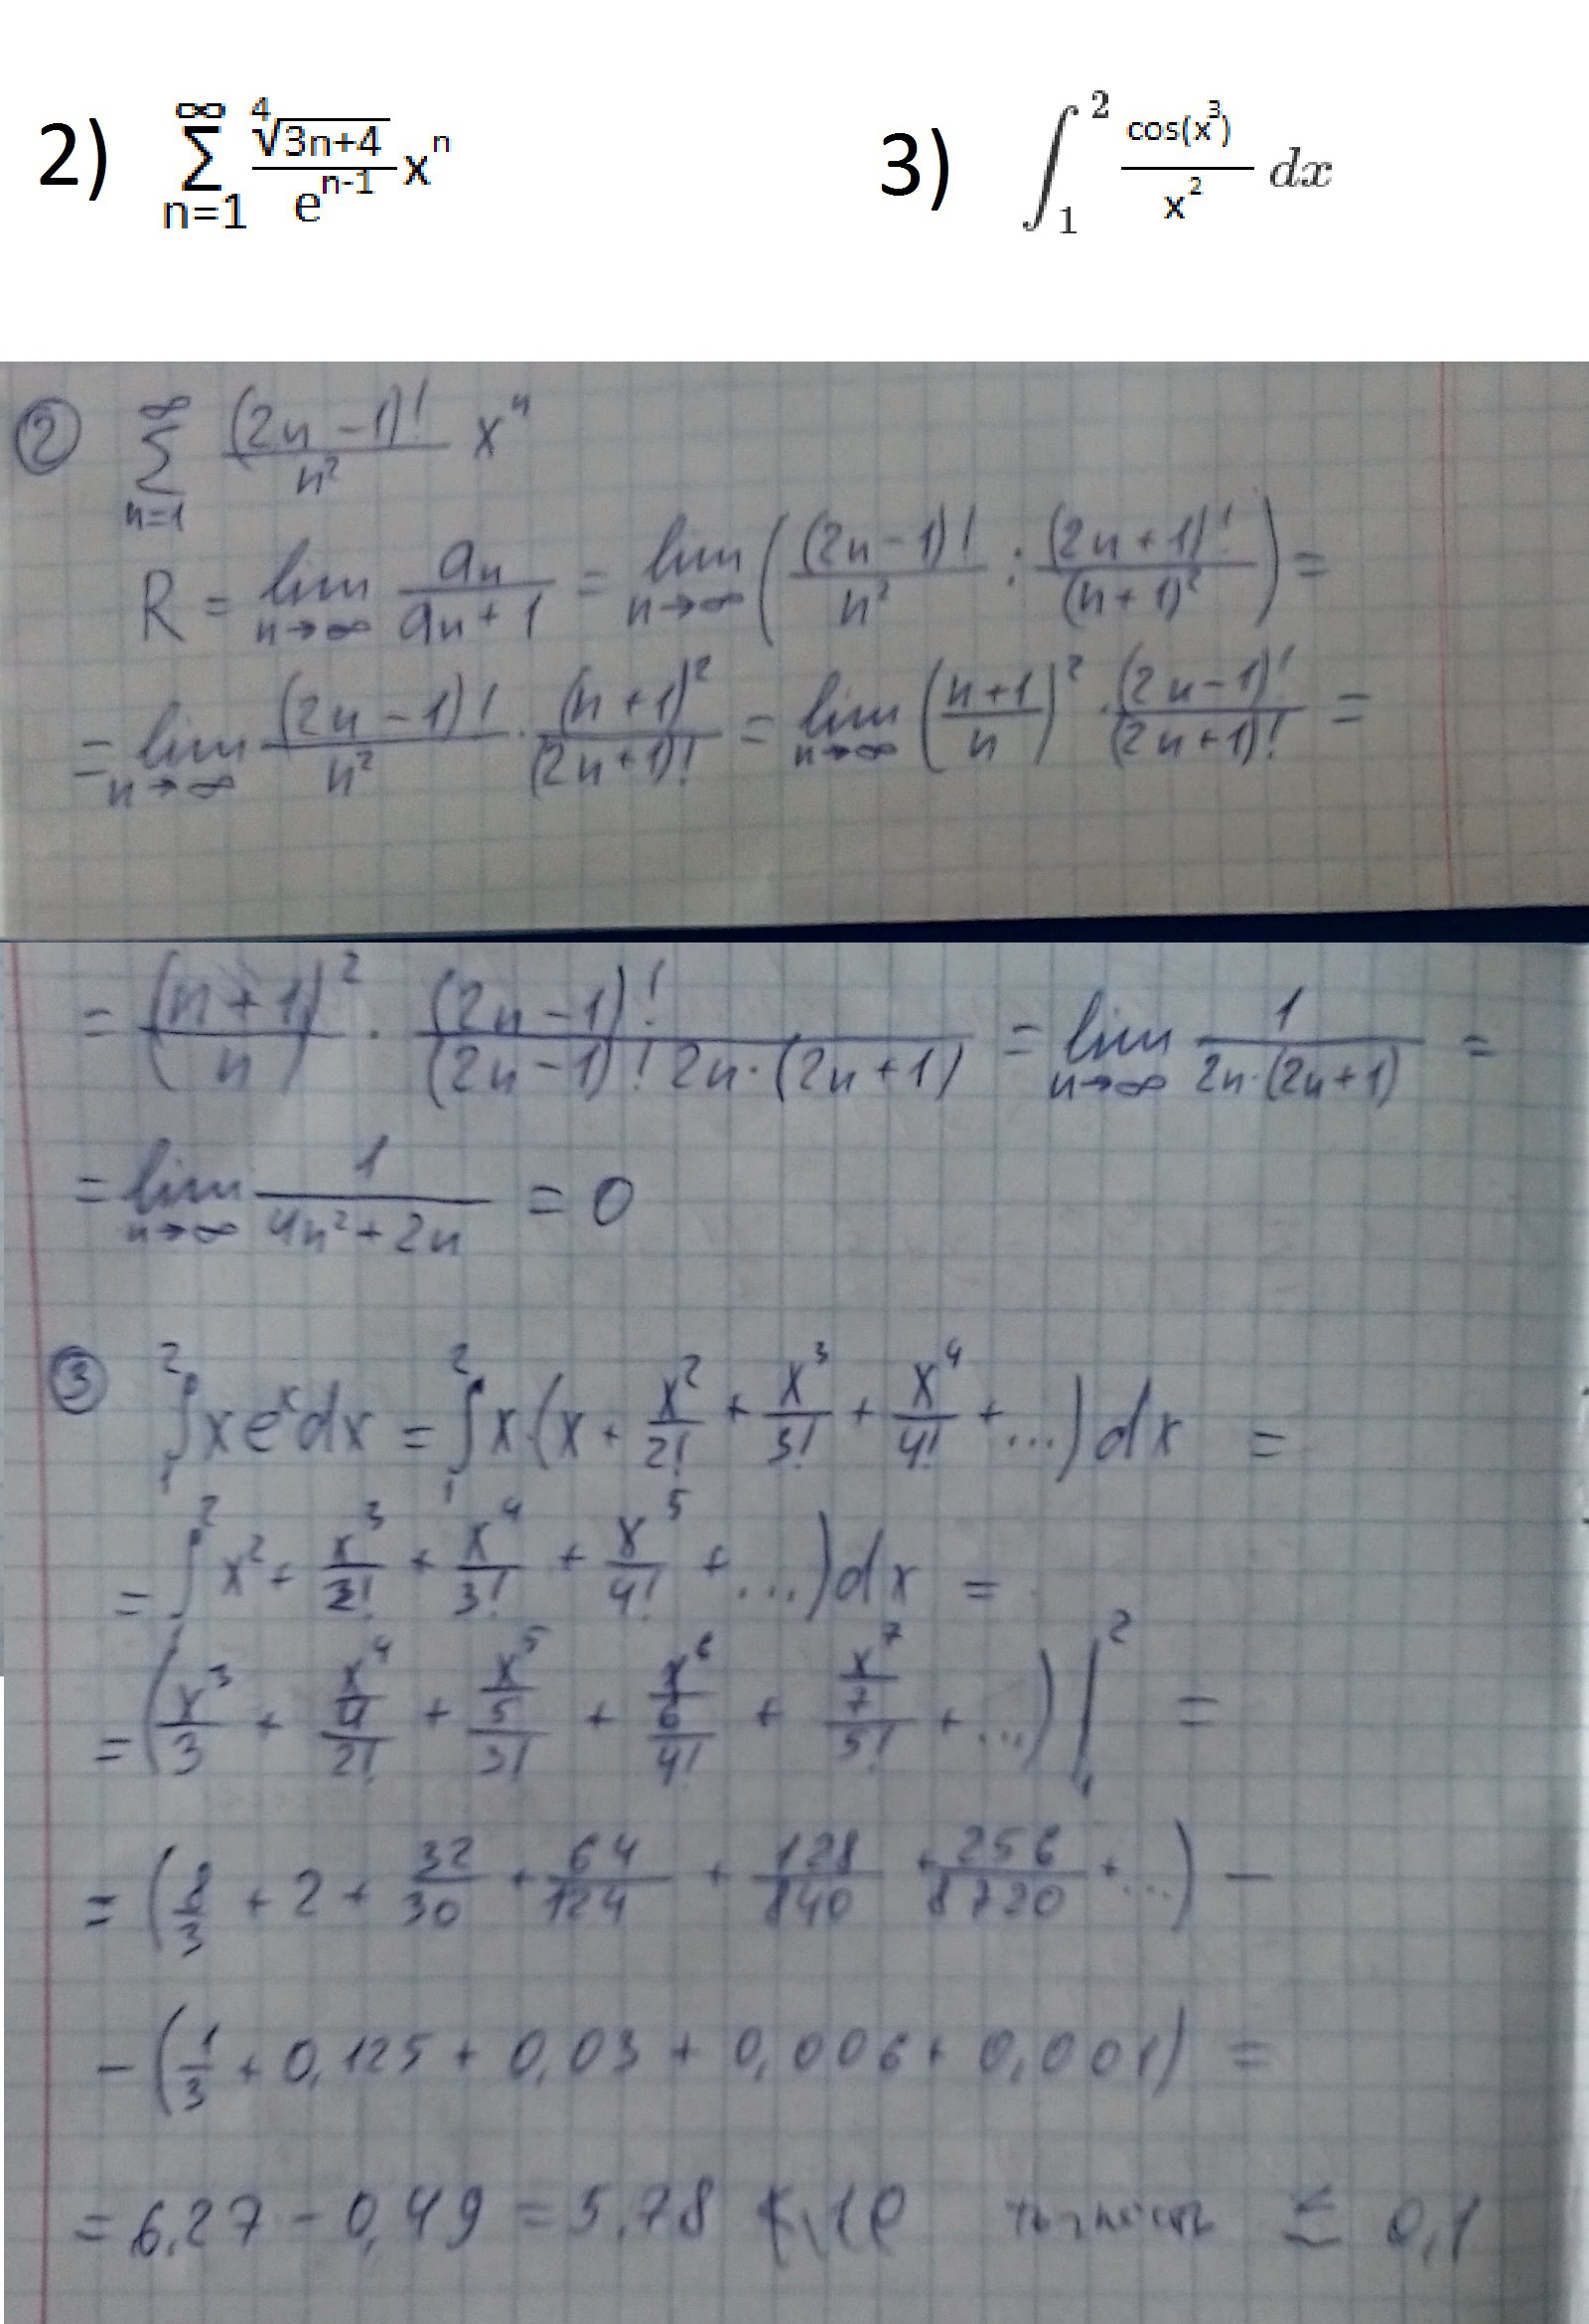 2) ∞ Σ n=1 ⁴√3n+4 / eⁿ⁻¹ xⁿ
3) ∫₁² cos(x³) / x² dx
② ∞ Σ n=1 (2n-1)! / n² xⁿ
R = lim n→∞ an / an+1 = lim n→∞ ( (2n-1)! / n² : (2n+1)! / (n+1)² ) =
= lim n→∞ (2n-1)! / n² · (n+1)² / (2n+1)! = lim n→∞ ( n+1 / n )² · (2n-1)! / (2n+1)! =
= ( n+1 / n )² · (2n-1)! / (2n-1)! 2n·(2n+1) = lim n→∞ 1 / 2n·(2n+1) =
= lim n→∞ 1 / 4n²+2n = 0
③ ∫₁² xeˣdx = ∫₁² x·(x + x²/2! + x³/3! + x⁴/4! + ...) dx =
= ∫₁² x² + x³/2! + x⁴/3! + x⁵/4! + ...) dx =
= ( x³/3 + x⁴/4/2! + x⁵/5/3! + x⁶/6/4! + x⁷/7/5! + ...) |₁² =
= ( 8/3 + 2 + 32/30 + 64/124 + 128/840 + 256/8720 + ...) -
- ( 1/3 + 0,125 + 0,03 + 0,006 + 0,001) =
= 6,27 - 0,49 = 5,78 ≤ 0,1